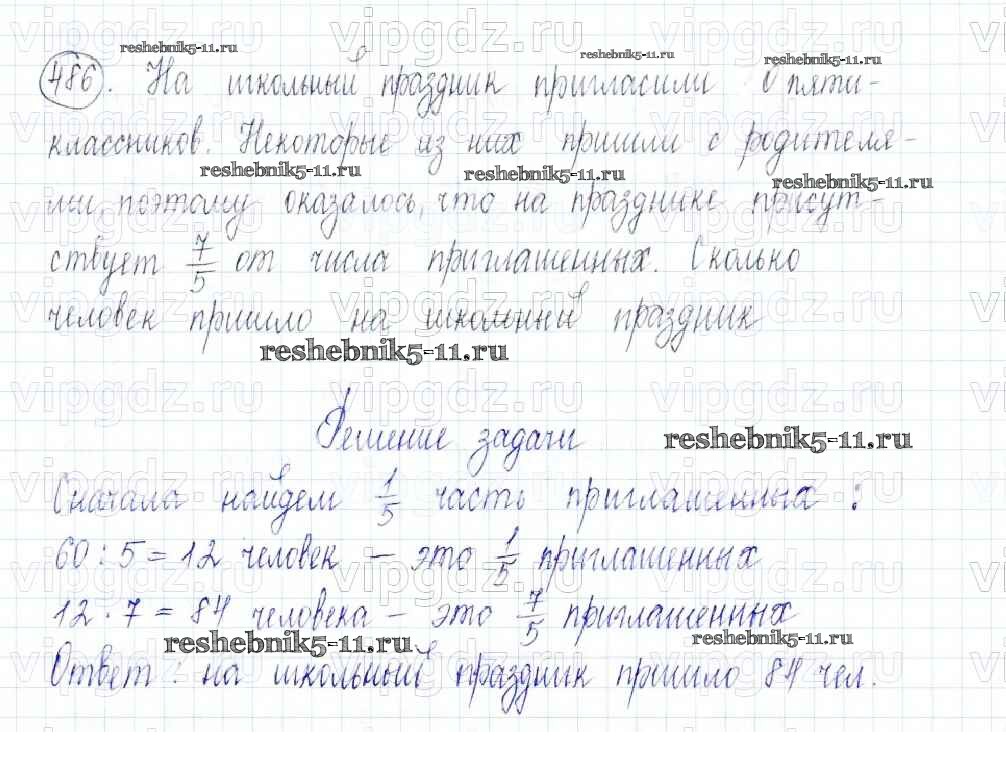 486. На школьный праздник пригласили 60 пяти-
классников. Некоторые из них пришли с родителя-
ми, поэтому оказалось, что на празднике присут-
ствует 7/5 от числа приглашенных. Сколько
человек пришло на школьный праздник
Решение задачи
Сначала найдем 1/5 часть приглашенных :
60 : 5 = 12 человек – это 1/5 приглашенных
12 · 7 = 84 человека – это 7/5 приглашенных
Ответ : на школьный праздник пришло 84 чел.
reshebnik5-11.ru
reshebnik5-11.ru
reshebnik5-11.ru
reshebnik5-11.ru
reshebnik5-11.ru
reshebnik5-11.ru
reshebnik5-11.ru
reshebnik5-11.ru
reshebnik5-11.ru
reshebnik5-11.ru
vipgdz.ru